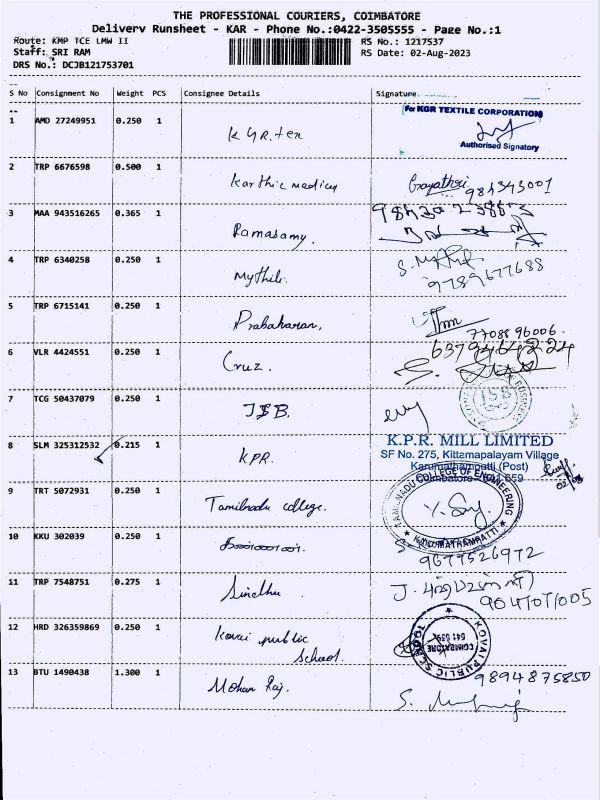 THE PROFESSIONAL COURIERS, COIMBATORE
Delivery Runsheet - KAR - Phone No.:0422-3505555 - Page No.:1
Route: KMP TCE LMW II RS No.: 1217537
Staff: SRI RAM RS Date: 02-Aug-2023
DRS No.: DCJB121753701
S No Consignment No Weight PCS Consignee Details Signature
1 AMD 27249951 0.250 1 K G R. tex For KGR TEXTILE CORPORATION
Authorised Signatory
2 TRP 6676598 0.500 1 Karthic medical Gayathri
3 MAA 943516265 0.365 1 Ramasamy.
4 TRP 6340258 0.250 1 Mythili. 9789677688
5 TRP 6715141 0.250 1 Prabaharan. 7708896006.
6 VLR 4424551 0.250 1 Cruz.
7 TCG 50437079 0.250 1 ISB.
8 SLM 325312532 0.215 1 KPR. K.P.R. MILL LIMITED
SF No. 275, Kittampalayam Village
Karumathampatti (Post)
Coimbatore - 641 659
9 TRT 5072931 0.250 1 Tamilnadu college. TAMILNADU COLLEGE OF ENGINEERING
★ KARUMATHAMPATTI ★
10 KKU 302039 0.250 1 9677526972
11 TRP 7548751 0.275 1 Sindhu
12 HRD 326359869 0.250 1 Kovai public School. KOVAI PUBLIC SCHOOL
COIMBATORE
13 BTU 1490438 1.300 1 Mohan Raj. 9894875850